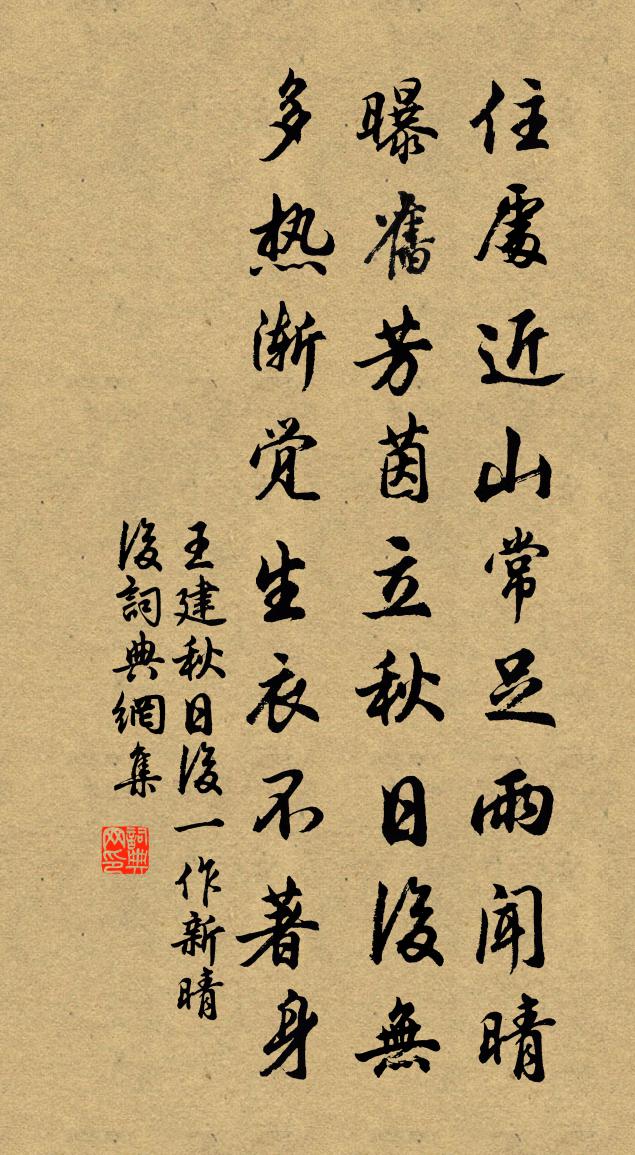 住處近山常足雨聞晴
曝舊芳茵立秋日後無
多热渐觉生衣不著身
王建秋日後一作新晴
後詞典網集
詞典网印